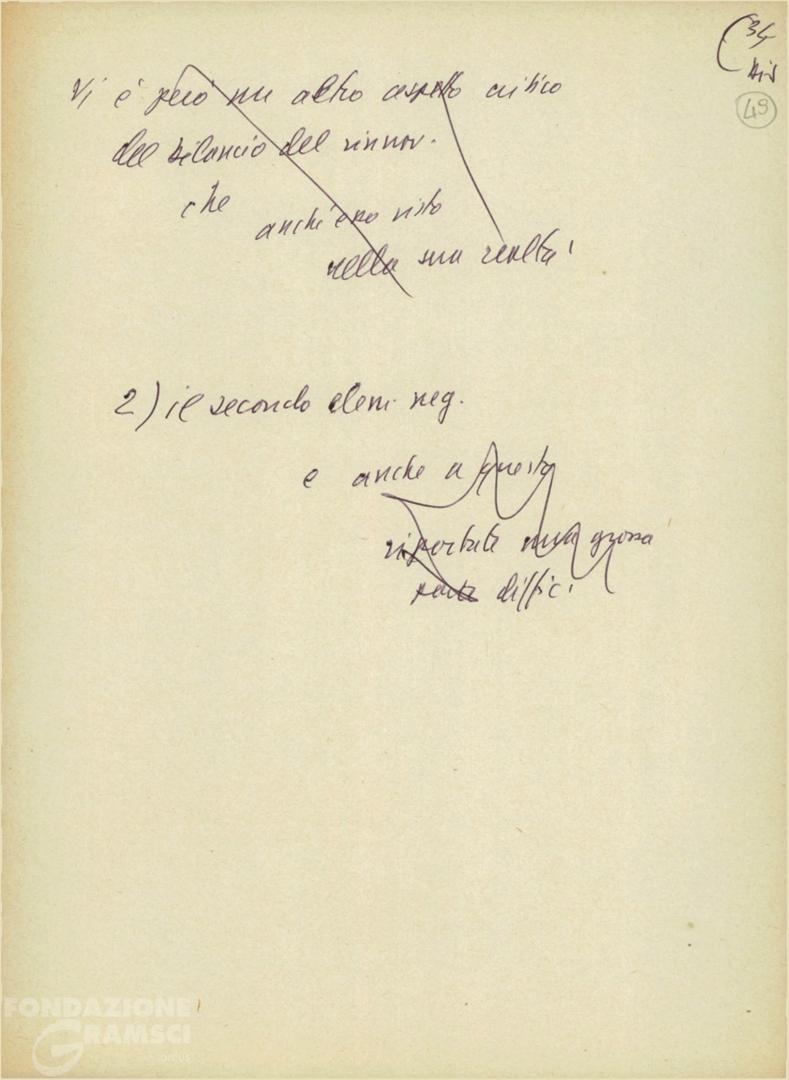 (34
bis
49
Vi è però un altro aspetto critico
del bilancio del rinnov.
che
anch'esso visto
nella sua realtà
2) il secondo elem. neg.
e anche a questo
riportate una grossa
parte diffic.
FONDAZIONE
GRAMSCI
onlus